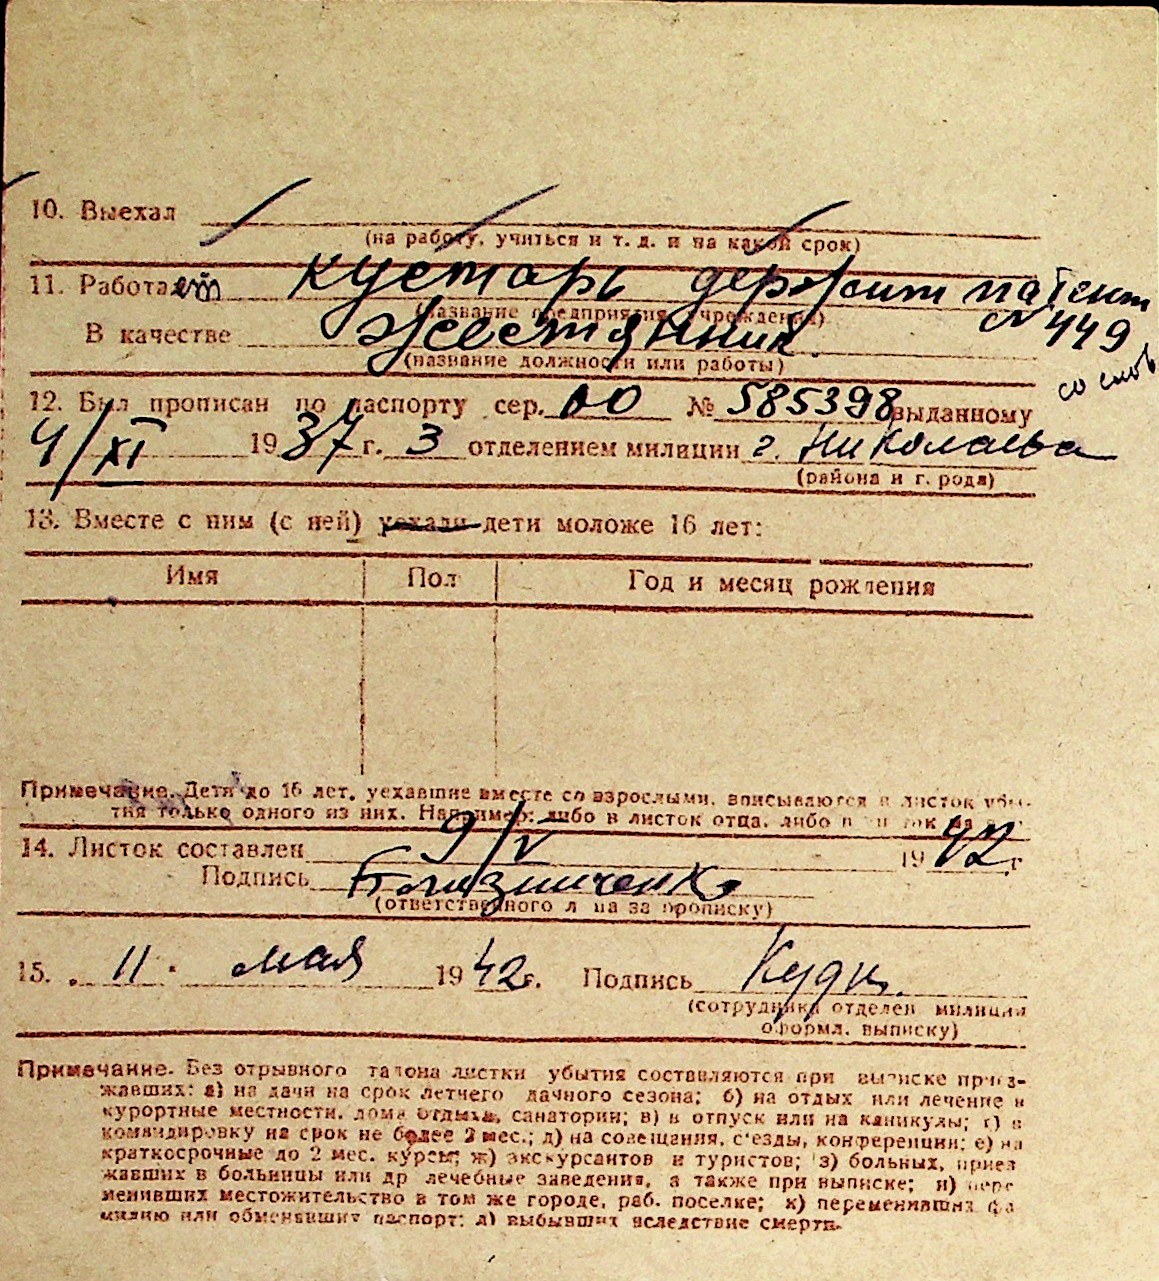 10. Выехал
(на работу, учиться и т. д. и на какой срок)
11. Работает кустарь держит патент
(название предприятия, учреждения) № 449
В качестве Жестянник
(название должности или работы) со слов
12. Был прописан по паспорту сер. № 585398 выданному
4/XI 1937 г. 3 отделением милиции г. Николаева
(района и города)
13. Вместе с ним (с ней) уехали дети моложе 16 лет:
Имя Пол Год и месяц рождения
Примечание. Дети до 16 лет, уехавшие вместе со взрослыми, вписываются в листок убы-
тия только одного из них. Например: либо в листок отца, либо в
14. Листок составлен 9/V 1942 г
Подпись
(ответственного лица за прописку)
15. „ 11 " мая 1942 г. Подпись
(сотрудника отделен милиции
оформл. выписку)
Примечание. Без отрывного талона листки убытия составляются при выписке приез-
жавших: а) на дачи на срок летнего дачного сезона; б) на отдых или лечение в
курортные местности, дома отдыха, санатории; в) в отпуск или на каникулы; г) в
командировку на срок не более 2 мес.; д) на совещания, с'езды, конференции; е) на
краткосрочные до 2 мес. курсы; ж) экскурсантов и туристов; з) больных, приез
жавших в больницы или др лечебные заведения, а также при выписке; и) пере
менивших местожительство в том же городе, раб. поселке; к) переменивших фа
милию или обменявших паспорт; л) выбывших вследствие смерти.